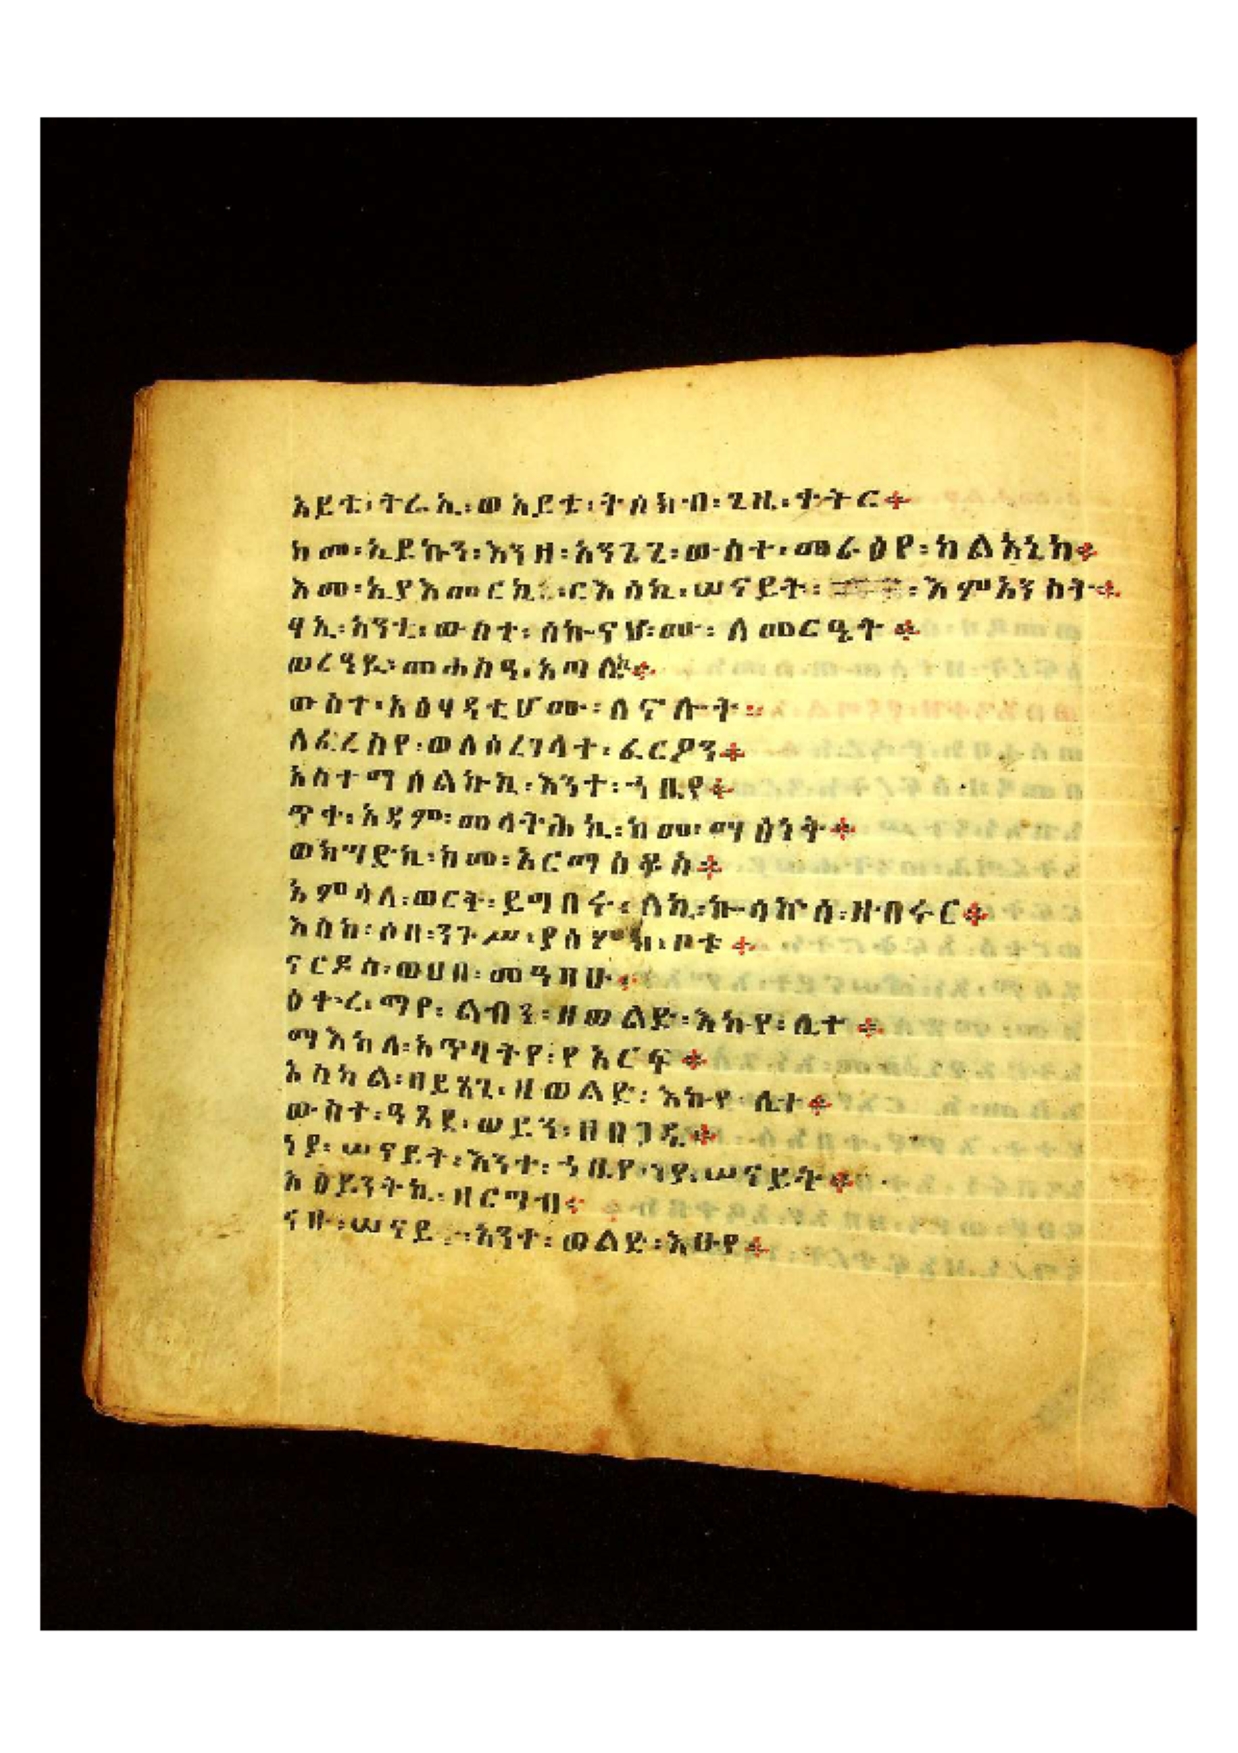 አይቴ፡ትሬኢ፡ወአይቴ፡ትሰክብ፡ጊዜ፡ቀትር፨
ከመ፡ኢይኩን፡እንዘ፡አንጌጊ፡ውስተ፡መራዕየ፡ካልኣኒከ፨
እመ፡ኢያእመርኪ፡ርእሰኪ፡ሠናይት፡እምአንስት፨
ፃኢ፡አንቲ፡ውስተ፡ሰኰናሆሙ፡ለመርዔት፨
ወረዓዪ፡መሐስዒ፡አጣሊ፨
ውስተ፡አዕፃዳቲሆሙ፡ለኖሎት፨
ለፈረስየ፡ወለሰረገላት፡ፈርዖን፨
አስተማሰልኩኪ፡እንተ፡ኀቤየ፨
ጥቀ፡አዳም፡መላትሕኪ፡ከመ፡ማዕነቅ፨
ወክሣድኪ፡ከመ፡አርማስቆስ፨
አምሳለ፡ወርቅ፡ይግበሩ፡ለኪ፡ኵሳኵሰ፡ዘብሩር፨
እስከ፡ሶበ፡ንጉሥ፡ያሰምክ፡ቦቱ፨
ናርዶስ፡ወሀበ፡መዓዛሁ፨
ዕቍረ፡ማየ፡ልብን፡ዘወልድ፡እኁየ፡ሊተ፨
ማእከለ፡አጥባትየ፡የአርፍ፨
አስካል፡በይጼጊ፡ዘወልድ፡እኁየ፡ሊተ፨
ውስተ፡ዓጸደ፡ወይን፡ዘበጋዲ፨
ነያ፡ሠናይት፡እንተ፡ኀቤየ፡ነያ፡ሠናይት፨
አዕይንትኪ፡ዘርግብ፨
ናሁ፡ሠናይ፡አንተ፡ወልድ፡እሁየ፨